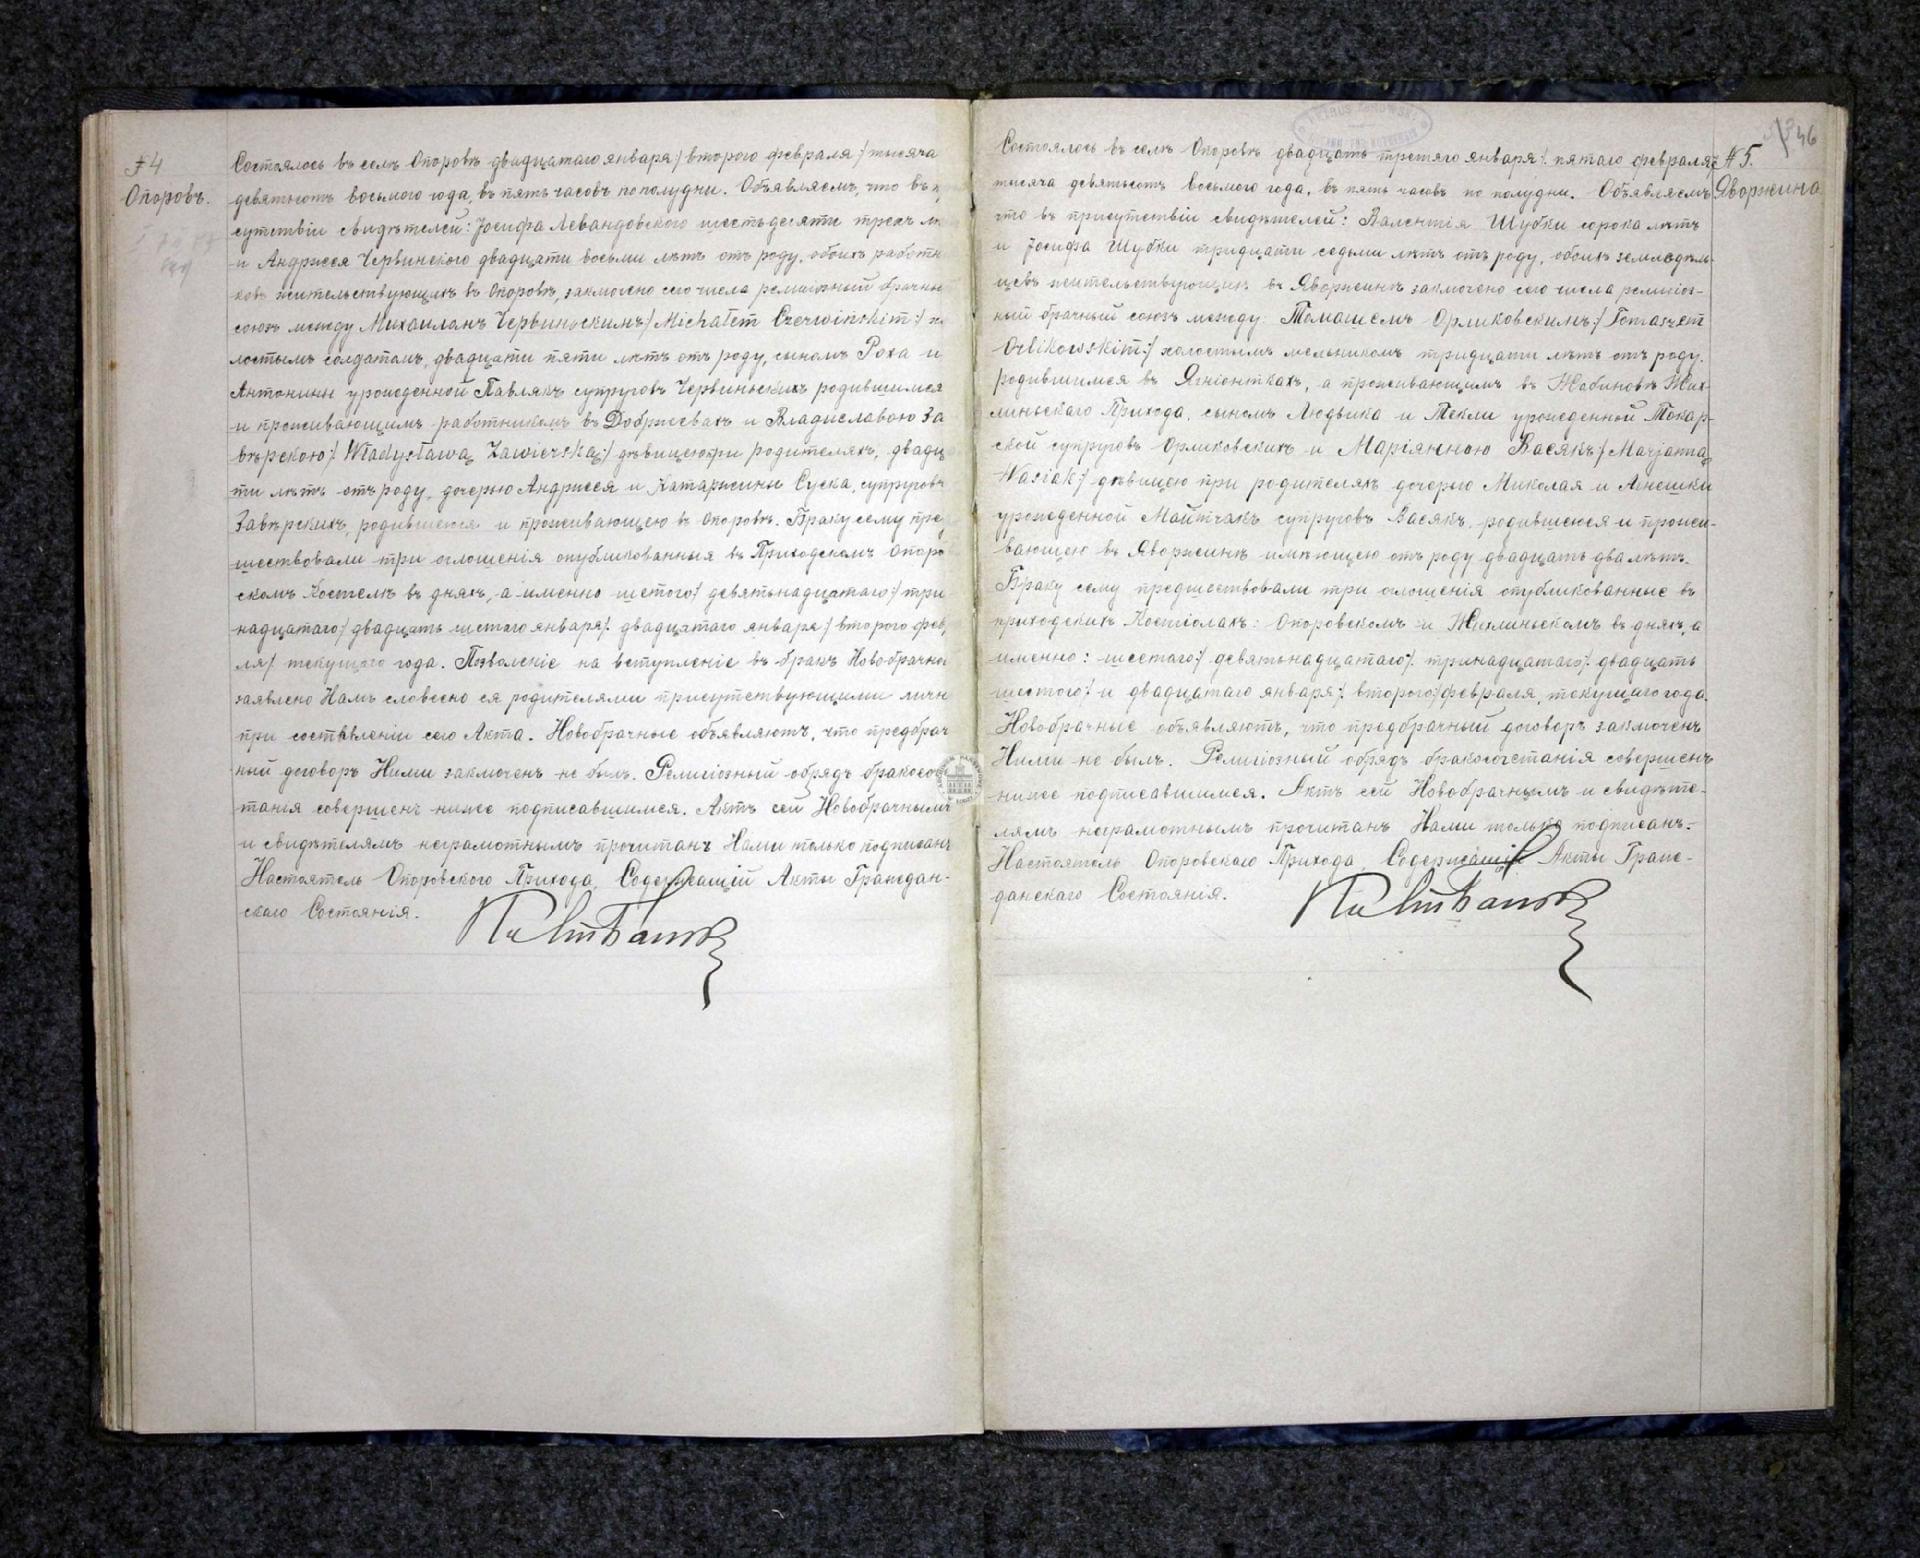 № 4
Опоровъ.
Состоялось въ селѣ Опоровѣ двадцатаго января /второго февраля/ тысяча
девятьсотъ восьмого года, въ пять часовъ пополудни. Объявляемъ, что въ п
сутствіи свидѣтелей: Іосифа Левандовского шестьдесяти трехъ лѣ
и Андржея Червинского двадцати восьми лѣтъ отъ роду, обоихъ работн
ковъ жительствующихъ въ Опоровѣ, заключено сего числа религіозный брачны
союзъ между Михаиломъ Червиньскимъ /Michałem Czerwińskim:/ хо
лостымъ солдатомъ, двадцати пяти лѣтъ отъ роду, сыномъ Роха и
Антонины урожденной Павлякъ супруговъ Червиньскихъ родившимся
и проживающимъ работникомъ въ Добржевахъ и Владиславою За
вѣрскою /: Władysławą Zawierską:/ дѣвицею при родителяхъ, двадц
ти лѣтъ отъ роду, дочерью Андржея и Катаржины Суска, супруговъ
Завѣрскихъ, родившеюся и проживающею въ Опоровѣ. Браку сему пре
шествовали три оглошенія опубликованныя въ Приходскомъ Опоро
скомъ Костелѣ въ дняхъ, а именно шестого / девятьнадцатаго / три
надцатаго / двадцать шестого января /. двадцатаго января / второго фев,
ля / текущаго года. Позволеніе на вступленіе въ бракъ Новобрачной
заявлено Намъ словесно ея родителями присутствующими личн
при составленіи сего Акта. Новобрачные объявляютъ, что предбрач
ный договоръ Ними заключенъ не былъ. Религіозный обрядъ бракосоч
танія совершенъ ниже подписавшимся. Актъ сей Новобрачнымъ
и свидѣтелямъ неграмотнымъ прочитанъ Нами только подписанъ
Настоятель Опоровского Прихода, Содержащій Акты Граждан-
скаго Состоянія.
46
№ 5.
Яворжина
Состоялось въ селѣ Опоровѣ двадцать третяго января /. пятаго февраля /:
тысяча девятьсотъ восьмого года, въ пять часовъ по полудни. Объявляемъ
что въ присутствіи свидѣтелей: Валентія Шубки сорока лѣтъ
и Іосифа Шубки тридцати седьми лѣтъ отъ роду, обоихъ земледѣль-
цевъ жительствующихъ въ Яворжинѣ заключено сего числа религіоз-
ный брачный союзъ между: Томашемъ Орликовскимъ /Tomaszem
Orlikowskim:/ холостымъ мельникомъ тридцати лѣтъ отъ роду.
родившимся въ Ягніонткахъ, а проживающимъ въ Жабиновѣ Жих-
линьскаго Прихода, сыномъ Людвика и Текли урожденной Токар-
ской супруговъ Орликовскихъ и Маріянною Васякъ /Marjanną
Wasiak:/ дѣвицею при родителяхъ дочерью Миколая и Агнешки
урожденной Майтчакъ супруговъ Васякъ, родившеюся и прожи-
вающею въ Яворжинѣ имѣющею отъ роду двадцать два лѣтъ.
Браку сему предшествовали три оглошенія опубликованные въ
приходскихъ Костіолахъ: Опоровскомъ и Жихлиньскомъ въ дняхъ, а
именно: шестого / девятьнадцатаго /. тринадцатаго /. двадцать
шестого / и двадцатаго января /. второго / февраля, текущаго года.
Новобрачные объявляютъ, что предбрачный договоръ заключенъ
Ними не былъ. Религіозный обрядъ бракосочетанія совершенъ
ниже подписавшимся. Актъ сей Новобрачнымъ и свидѣте-
лямъ неграмотнымъ прочитанъ Нами только подписанъ.-
Настоятель Опоровскаго Прихода, Содержащій Акты Граж-
данскаго Состоянія.